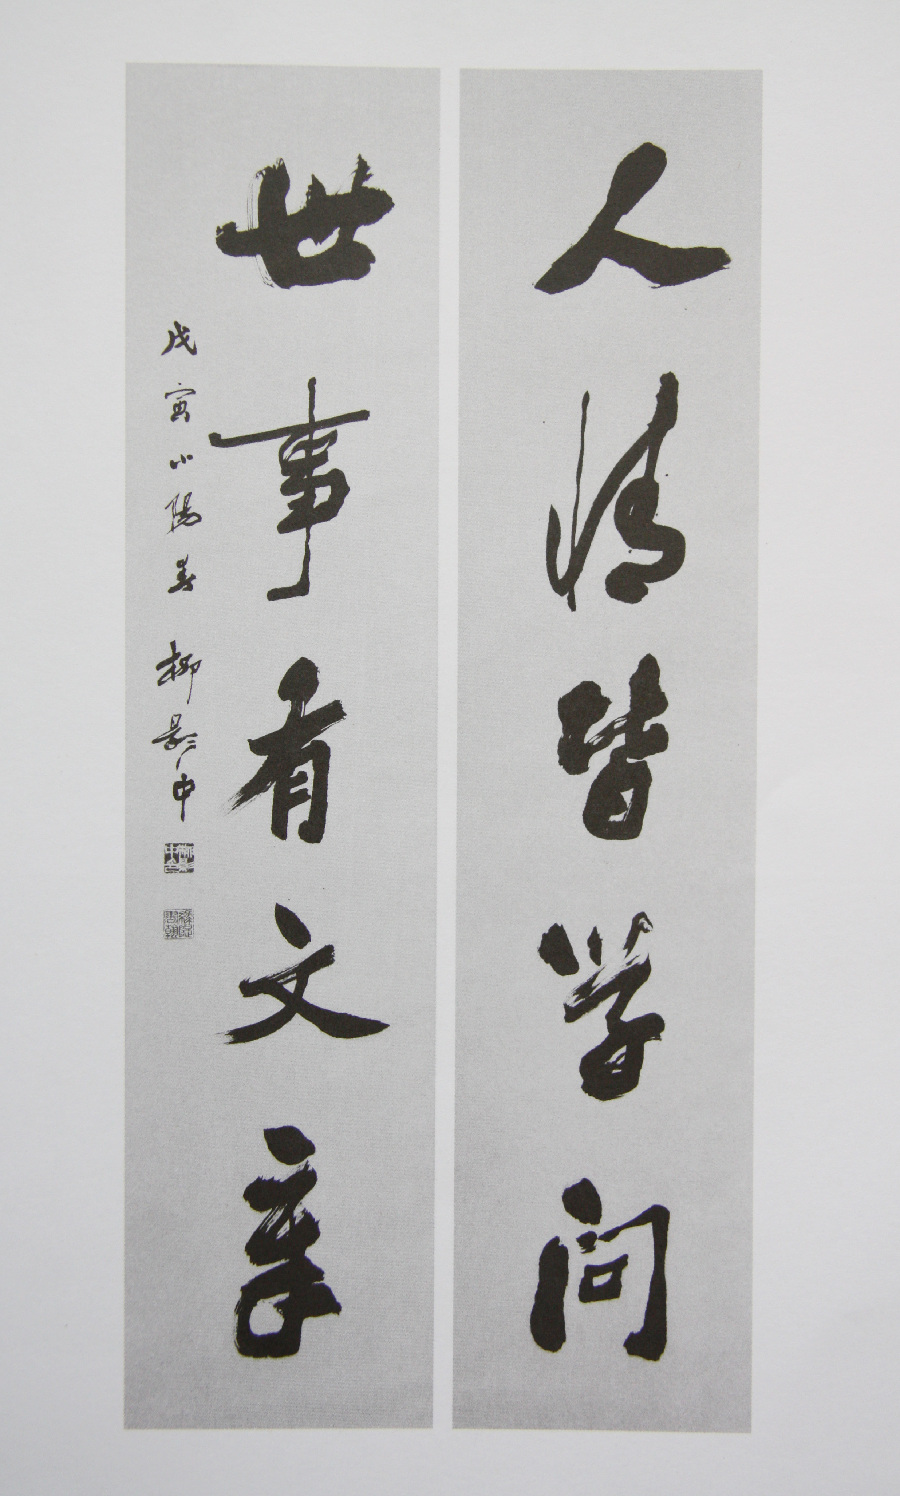 人情皆学问
世事有文章
戊寅小陽春 柳影中